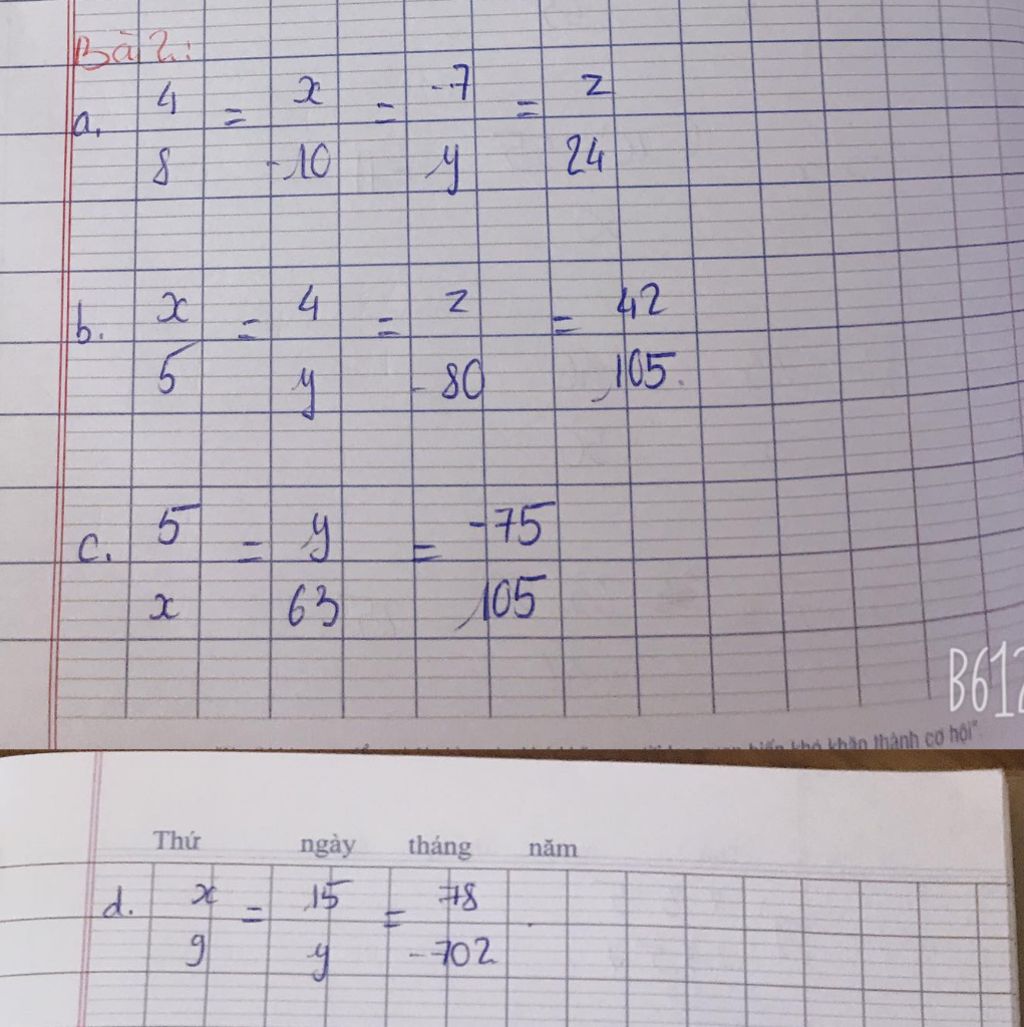 Bài 2:
a. 4/8 = x/-10 = -7/y = z/24
b. x/5 = 4/y = z/-80 = 42/105
c. 5/x = y/63 = -75/105
B612
biến khó khăn thành cơ hội".
Thứ ngày tháng năm
d. x/9 = 15/y = 78/-702